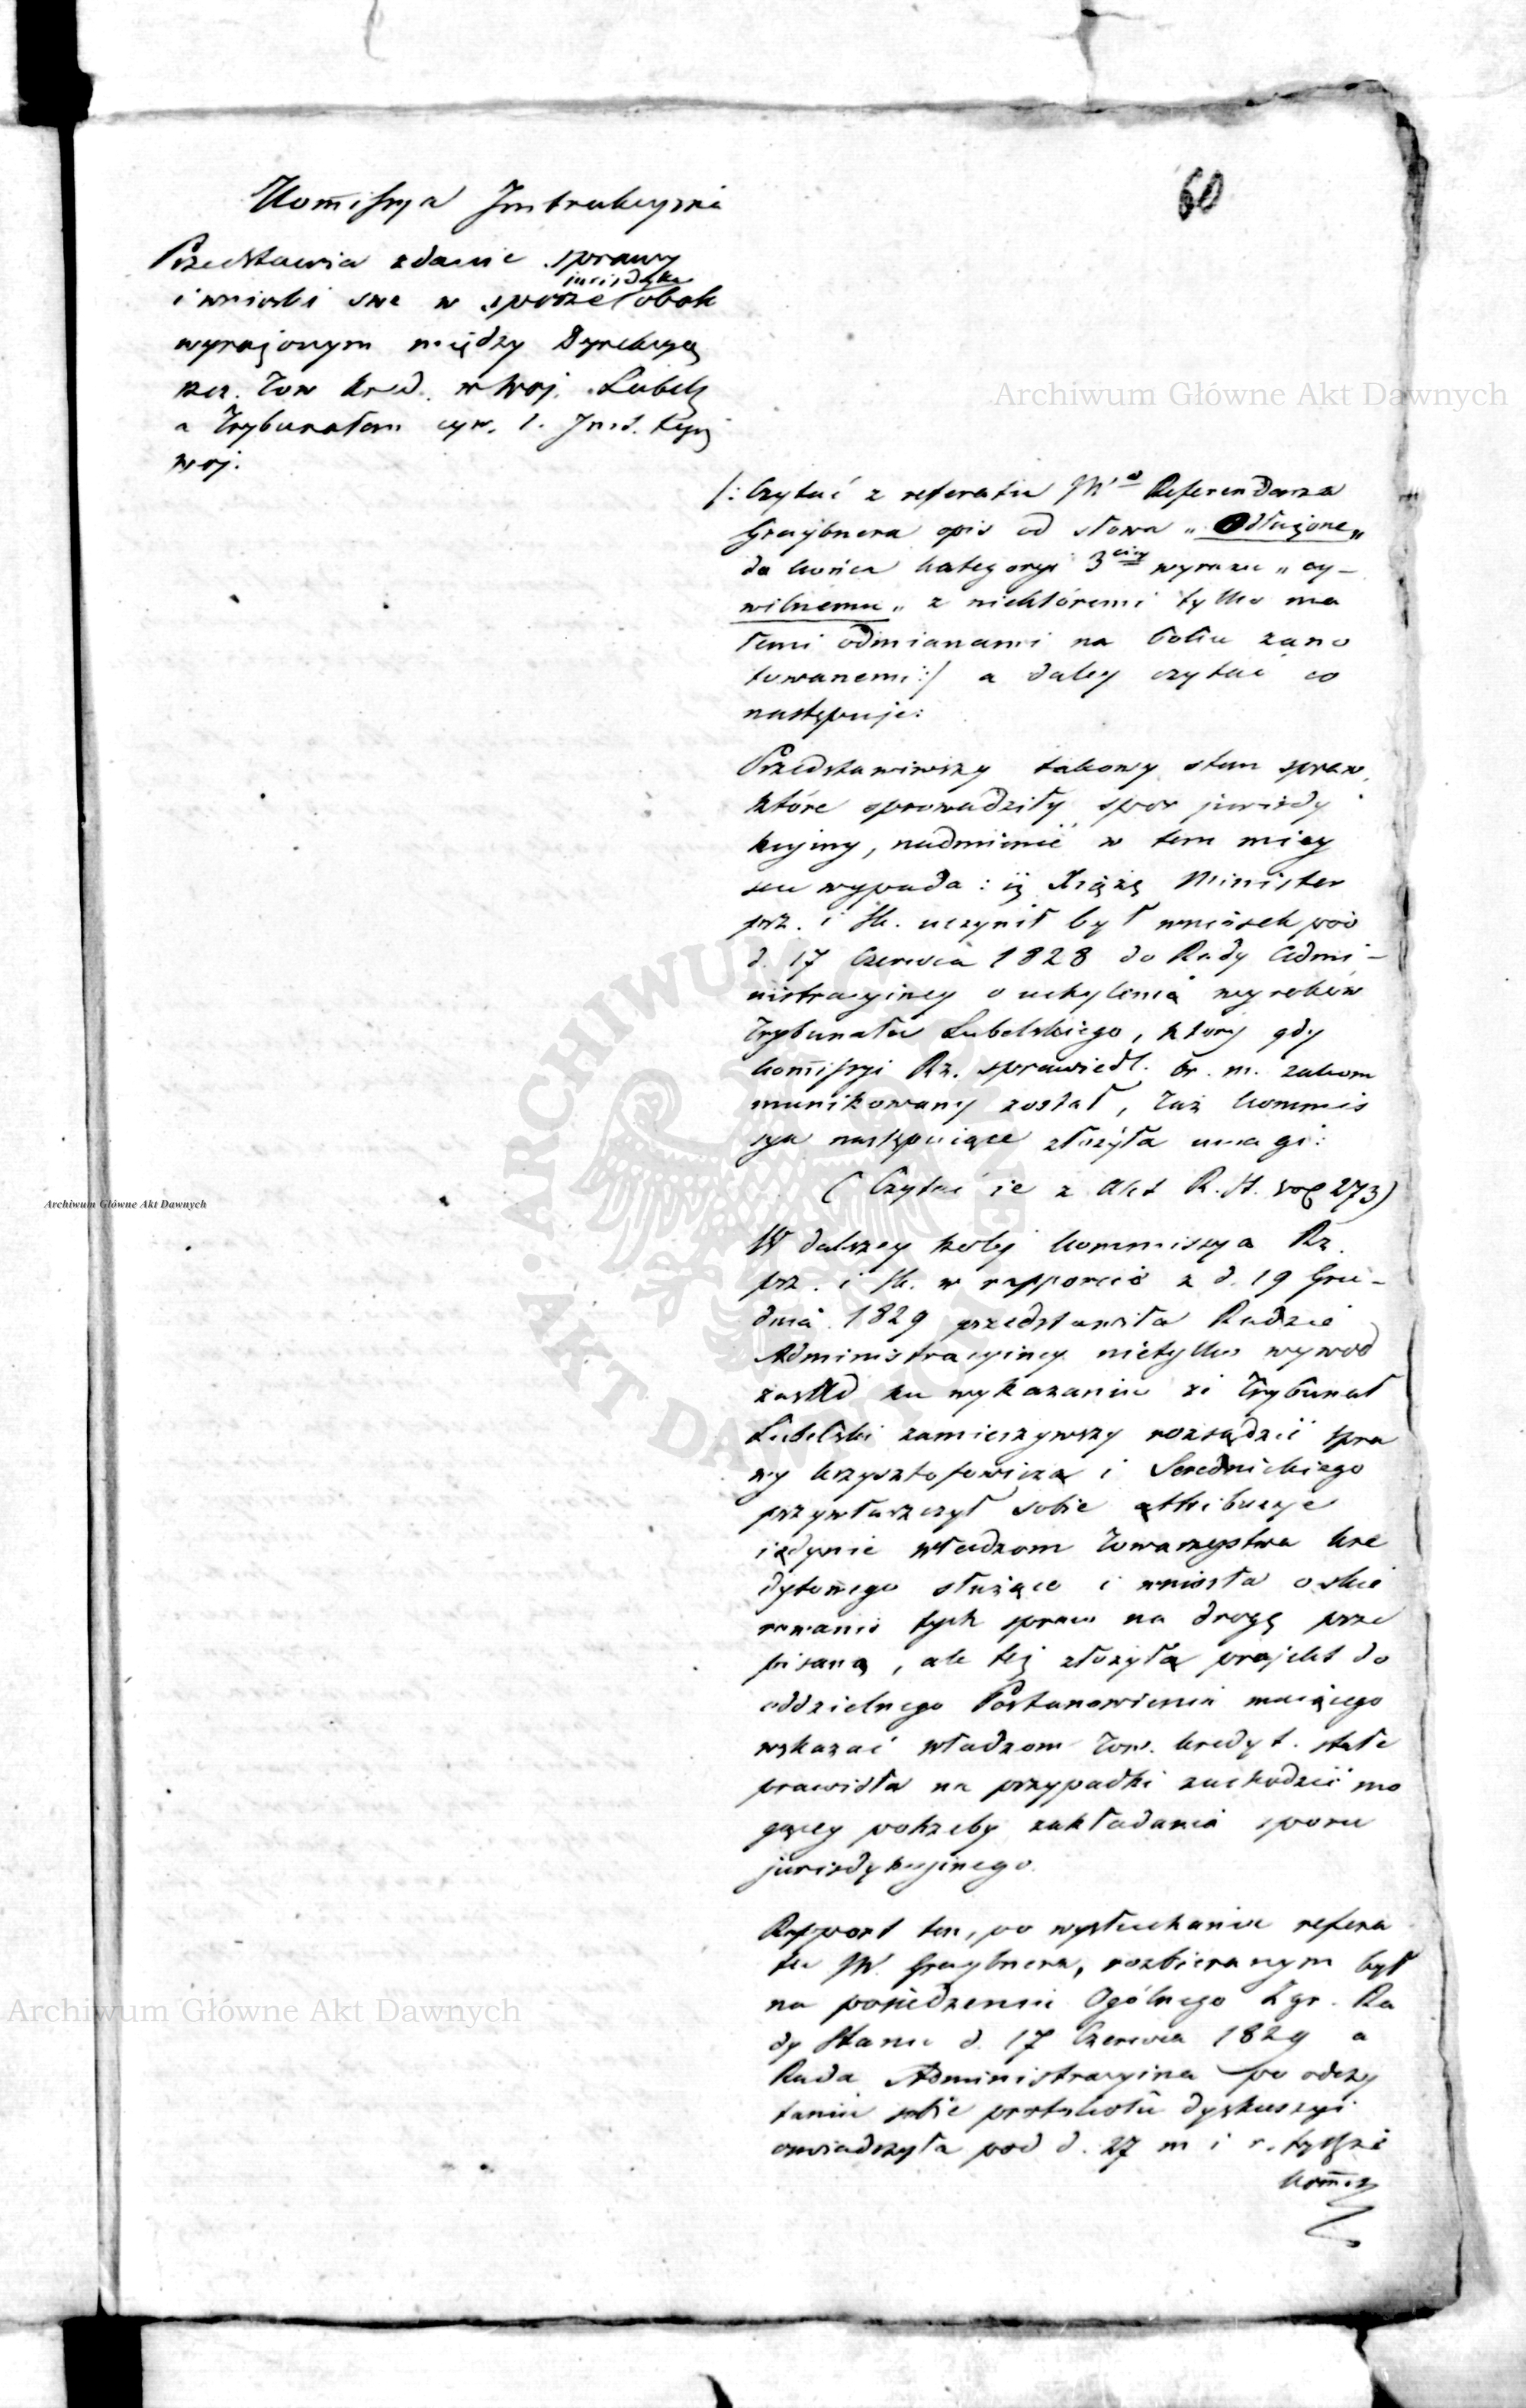 60
Kom̄issya Instrukcyjna
Przedstawia zdanie sprawy
i wnioski swe w sporze jurisdyk. obok
wyrażonym między Dyrekcyą
szcz. Tow kred. w Woj. Lubel
a Trybunałem cyw. 1. Inst. tegoż
woj.
/: Czytać z referatu JWo Referendarza
Graybnera opis od słowa „Odłużone„
do końca kategoryi 3ciey wyrazu „cy-
wilnemu„ z niektóremi tylko ma
łemi odmianami na boku zano
towanemi :/ a daley czytać co
następuje:
Przedstawiwszy takowy stan spraw,
które sprowadziły spor jurisdy
kcyiny, nadmienić w tem miey
scu wypada: iż Xiążę Minister
prz. i sk. uczynił był wniosek pod
d. 17 Czerwca 1828 do Rady Admi-
nistracyiney o uchylenie wyroków
Trybunału Lubelskiego, który gdy
Kom̄issyi Rz. sprawiedl. br. m. zakom
munikowany został, Taż Kommis
sya następuiące złożyła uwagi:
(Czytać ie z Akt R. St. vol 273)
W dalszey kolei Kommissya Rz.
prz. i sk. w rapporcie z d. 19 Gru-
dnia 1829 przedstawiła Radzie
Administracyiney nietylko wywod
zasad ku wykazaniu że Trybunał
Lubelski zamierzywszy rozsądzić spra
wy Krzysztofowicza i Serednickiego
przywłaszczył sobie attribucye
iedynie władzom Towarzystwa kre
dytowego służące i wniosła o skie
rowanie tych spraw na drogę prze
pisaną, ale też złożyła projekt do
oddzielnego Postanowienia maiącego
wskazać władzom Tow. kredyt. stałe
prawidła na przypadki zachodzić mo
gącey potrzeby zakładania sporu
jurisdykcyinego.
Rapport ten, po wysłuchaniu refera
tu JW. Graybnera, rozbieranym był
na posiedzeniu Ogólnego Zgr. Ra
dy Stanu d. 17 Czerwca 1829 a
Rada Administracyina po odczy
taniu sobie protokołu dyskussyi
oświadczyła pod d. 27 m i r. tychże
Kom̄is
Archiwum Główne Akt Dawnych
Archiwum Główne Akt Dawnych
Archiwum Główne Akt Dawnych